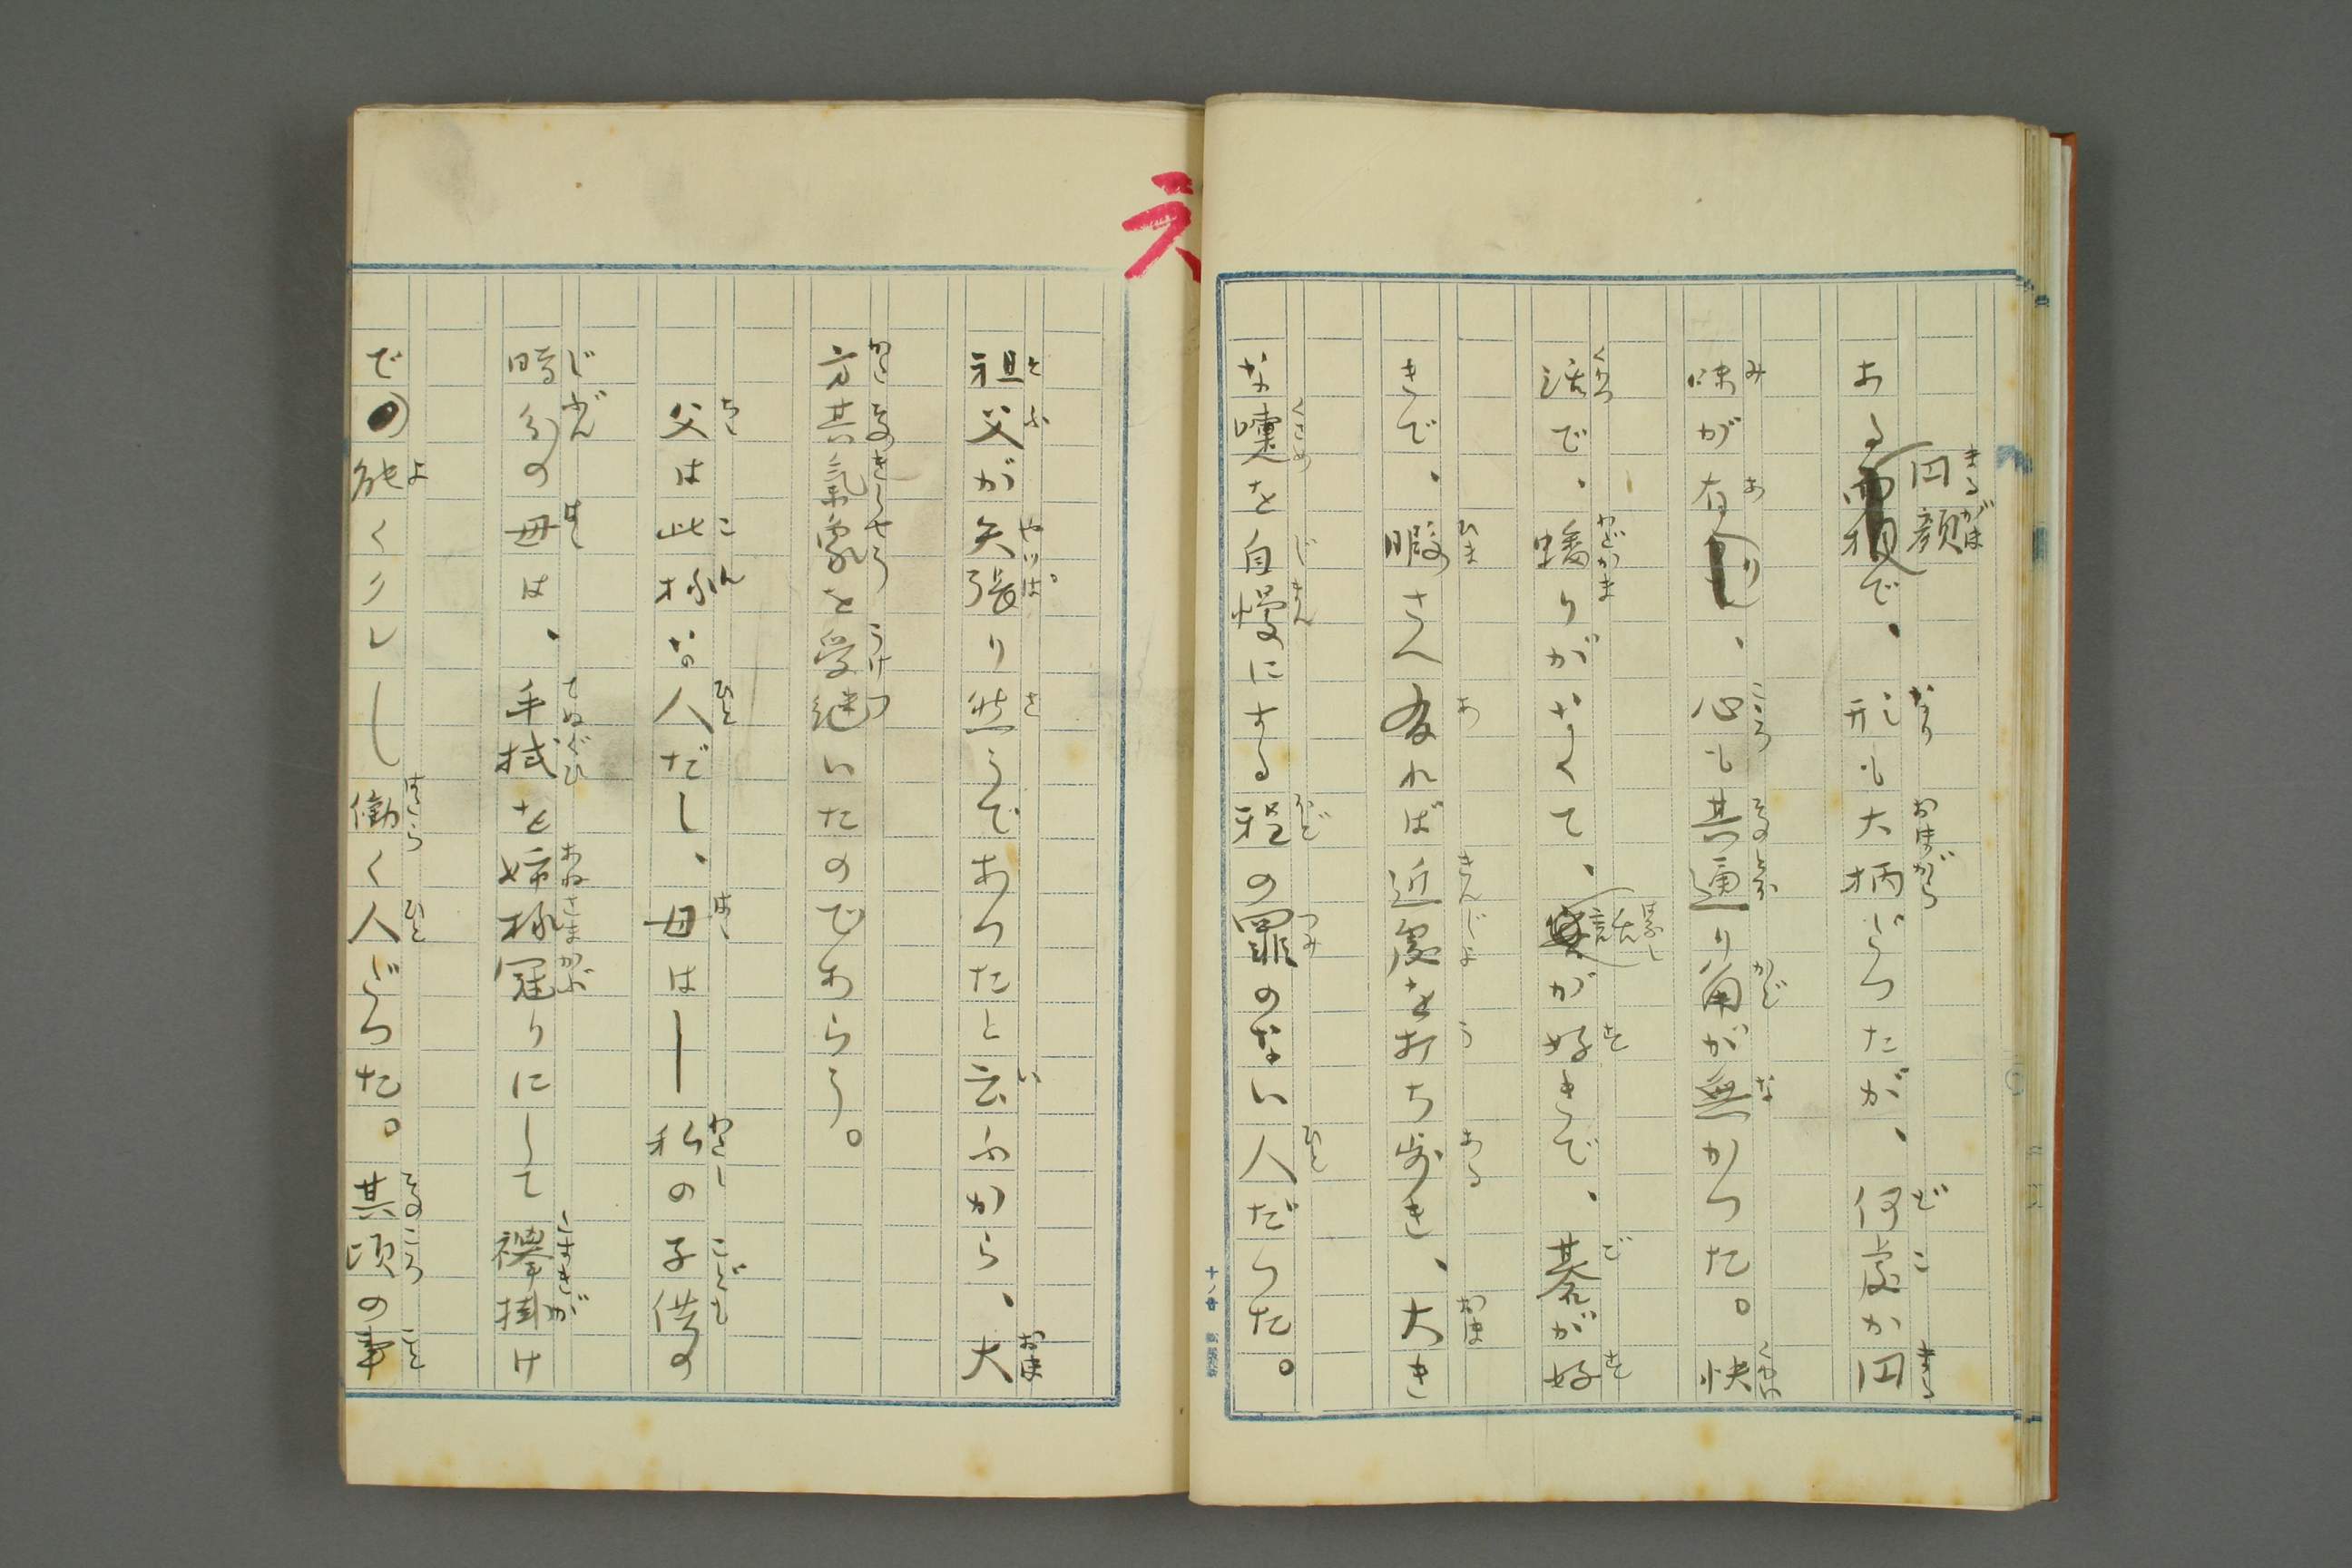 ある円顔で、形も大柄だつたが、何處か円
味が有り、心も其通り角が無かつた。快
活で、蟠りがなくて、話が好きで、碁が好
きで、暇さへ有れば近處を打ち歩き、大き
な嚏を自慢にする程の罪のない人だつた。
祖父が矢張り然うであつたと云ふから、大
方其氣象を受継いたのであらう。
父は此様な人だし、母は―私の子供の
時分の母は、手拭を姉様冠りにして襷掛け
で能くクレ〳〵し働く人だつた。其頃の事